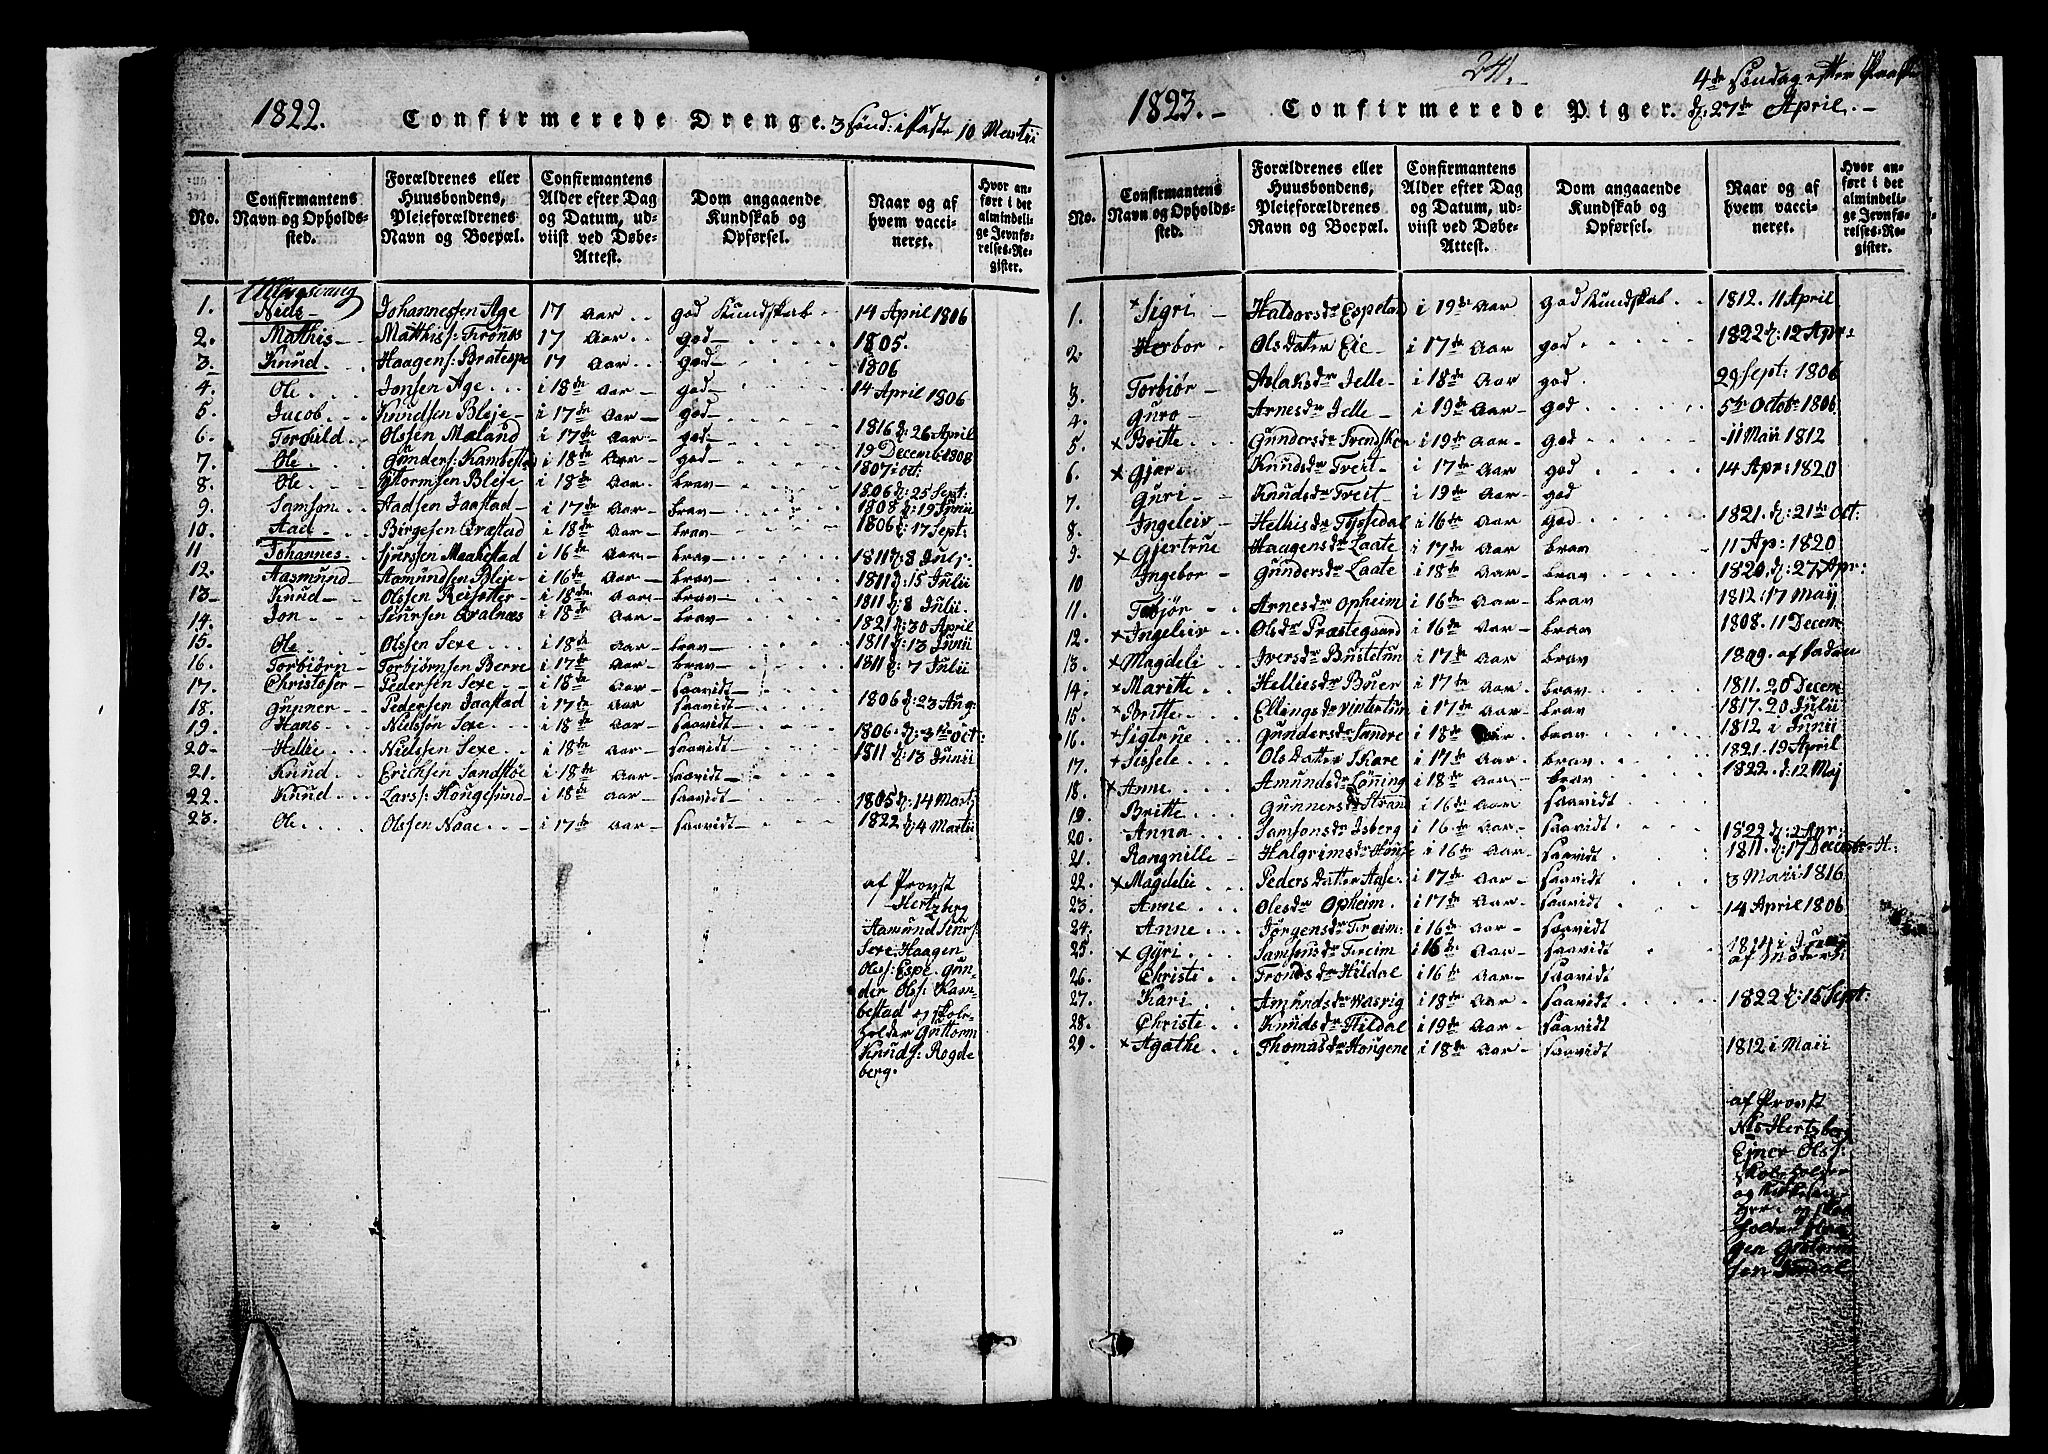 1822. Confirmerede Drenge. 3 Sönd: i Faste 10 Martii
No. Confirmantens Navn og Opholdssted. Forældrenes eller Huusbondens, Pleieforældrenes Navn og Boepæl. Confirmantens Alder efter Dag og Datum, udviist ved Døbe-Attest. Dom angaaende Kundskab og Opførsel. Naar og af hvem vaccineret. Hvor anført i det almindelige Jevnførelses-Register.
Ullensvang
1. Niels Johannessen Age 17 Aar god Kundskab 14 April 1806
2. Mathis Matthis: Trönes 17 Aar god 1805.
3. Knud Haagens: Bratespe 17 Aar god 1806
4. Ole Jonsen Age i 18de Aar god 14 April 1806
5. Jacob Knudsen Bleje i 17de Aar god
6. Torchild Olssen Mæland i 17de Aar god 1816 d: 26 April
7. Ole Gunders: Kambestad i 18de Aar god 19 Decemb: 1808
8. Ole Stormsen Bleje i 18de Aar brav 1807: oct:
9. Samson Aadsen Jaastad i 17de Aar brav 1806 d: 25 Sept:
10. Aad Birgesen Qvæstad i 18de Aar brav 1808 d: 19 Junii
11 Johannes Sjursen Maakestad i 16 Aar brav 1806 d: 17 Sept:
12. Aasmund Aamundsen Bleje i 16 Aar brav 1811 d: 8 Juli
13. Knud Olssen Reisæter i 18de Aar brav 1811 d: 15 Julii
14. Jon Siursen Qvalnæs i 18de Aar brav 1811 d: 8 Julii.
15. Ole Olssen Sexe i 18de Aar brav 1821 d: 30 April
16. Torbiörn Torbjörnsen Berve i 17de Aar brav 1811 d: 13 Junii
17. Christofer Pedersen Sexe i 18de Aar saavidt 1811 d: 7 Julii
18. Gunner Pedersen Jaastad i 17de Aar saavidt 1806 d: 23 Aug:
19. Hans Nielssön Sexe i 18de Aar saavidt
20. Helhe Nielssen Sexe i 18de Aar saavidt 1806. d: 31te Oct:
21. Knud Ericksen Sandstöe i 18de Aar saavidt 1811 d: 13 Junii
22. Knud Lars: Hougesund i 18de Aar saavidt 1805 d: 14 Marti
23. Ole Olssen Naae i 17de Aar saavidt 1822 d: 4 Martii
af Provst
Hertzberg
Aamund Siurs:
Sexe Haagen
Oles: Espe. Gun-
der Ols: Kam-
bestad og Skole-
holder Guttorm
Knuds: Rogde
berg.
24.
1823. Confirmerede Piger. 4de Söndag efter Paaske
d: 27de April.
No. Confirmantens Navn og Opholdssted. Forældrenes eller Huusbondens, Pleieforældrenes Navn og Boepæl. Confirmantens Alder efter Dag og Datum, udviist ved Døbe-Attest. Dom angaaende Kundskab og Opførsel. Naar og af hvem vaccineret. Hvor anført i det almindelige Jevnførelses-Register.
1. × Sigri Haldorsdr Espeland i 19de Aar god Kundskab 1812. 11 April
2. Herbor Olsdatter Eie i 17de Aar god 1822 d: 12 Apr:
3. Torbiör Aslaksdr Jelle i 18de Aar god 29 Sept: 1806
4. Guro Arnesdr Jelle i 19de Aar god 5te Octobr 1806
5. × Britte Gundersdr i 19de Aar god 11 Maii 1812
6. × Gjer Knudsdr Treit i 17de Aar god 14 Apr: 1820
7. Guri Knudsdr Treit i 19de Aar god
8. Ingeleiv Helhisdr Tyssedal i 16de Aar god 1821. d: 21de Oct:
9. × Gjertrue Haagensdr Laate i 17de Aar brav 11 Ap: 1820
10 Ingebor Gundersdr Laate i 18de Aar brav 1820 d: 27 Apr:
11. Torbjör Arnesdr Opheim i 16 Aar brav 1812. 17 Maij
12. × Ingeleiv Olsdr Præstegaard i 16de Aar brav 1808. 11 Decem
13. × Magdeli Iversdr Bustetun i 17de Aar brav 1809. af
14. × Maritte Helliesdr Buer i 17de Aar brav 1811. 20 Decem
15. × Britte Ellingsdr Vintertun i 17de Aar brav 1817. 20 Julii
16. × Sigtrue Gundersdr Sandre i 18de Aar brav 1812 i Junii
17. + Sissele Olsdatter Skare i 17de Aar brav 1821. 19 April
18. × Anne Amundsdr Lönning i 18de Aar brav 1822. d: 12 Maj
19. Britte Gunnersdr Strand i 16 Aar saavidt
20. Anna Samsonsdr Isberg i 16de Aar saavidt 1822 d: 2 Apr:
21. Rangnille Halgrimsdr House i 16de Aar saavidt 1811. d: 17 Decembr H:
22. × Magdelii Pedersdatter Aase: i 17de Aar saavidt 3 Maii: 1816
23. Anne Olesdr Opheim i 17de Aar saavidt 14 April 1806
24. Anne Jörgensdr Freim: i 16de Aar saavidt
25. × Gyri Samsonsdr Freim i 16de Aar saavidt 1814 i Junij
26. Christi Trondsdr Hildal i 16de Aar saavidt af Moderen
27. Kari Amundsdr i 18de Aar saavidt 1822 d: 15 Sept:
28. Christi Knudsdr Hildal i 19de Aar saavidt
29. × Agathe Thomasdr Hougene i 18de Aar saavidt 1812 i Maii
af Provst
Nls Hertzberg
Ejner Ols:
Skoleholder
og
og
holder Haa-
gen Guttorm
sen